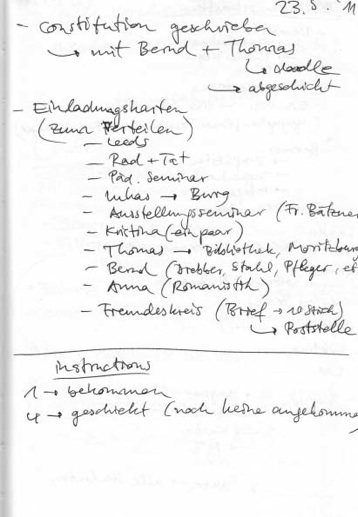 23.5.'11
- constitution geschrieben
↳ mit Bernd + Thomas
↳ doodle
↳ abgeschickt
- Einladungskarten
(zum Verteilen)
- Leeds
- Rad + Tat
- Päd. Seminar
- Lukas → Burg
- Ausstellungsseminar (Fr. Bätzner
- Kristina (ein paar)
- Thomas → Bibliothek, Moritzburg
- Bernd (Stahl, Pfleger,
- Anna (Romanistik)
- Freundeskreis (Brief → 10 Stück)
↳ Poststelle
instructions
1 → bekommen
4 → geschickt (noch keine angekommen